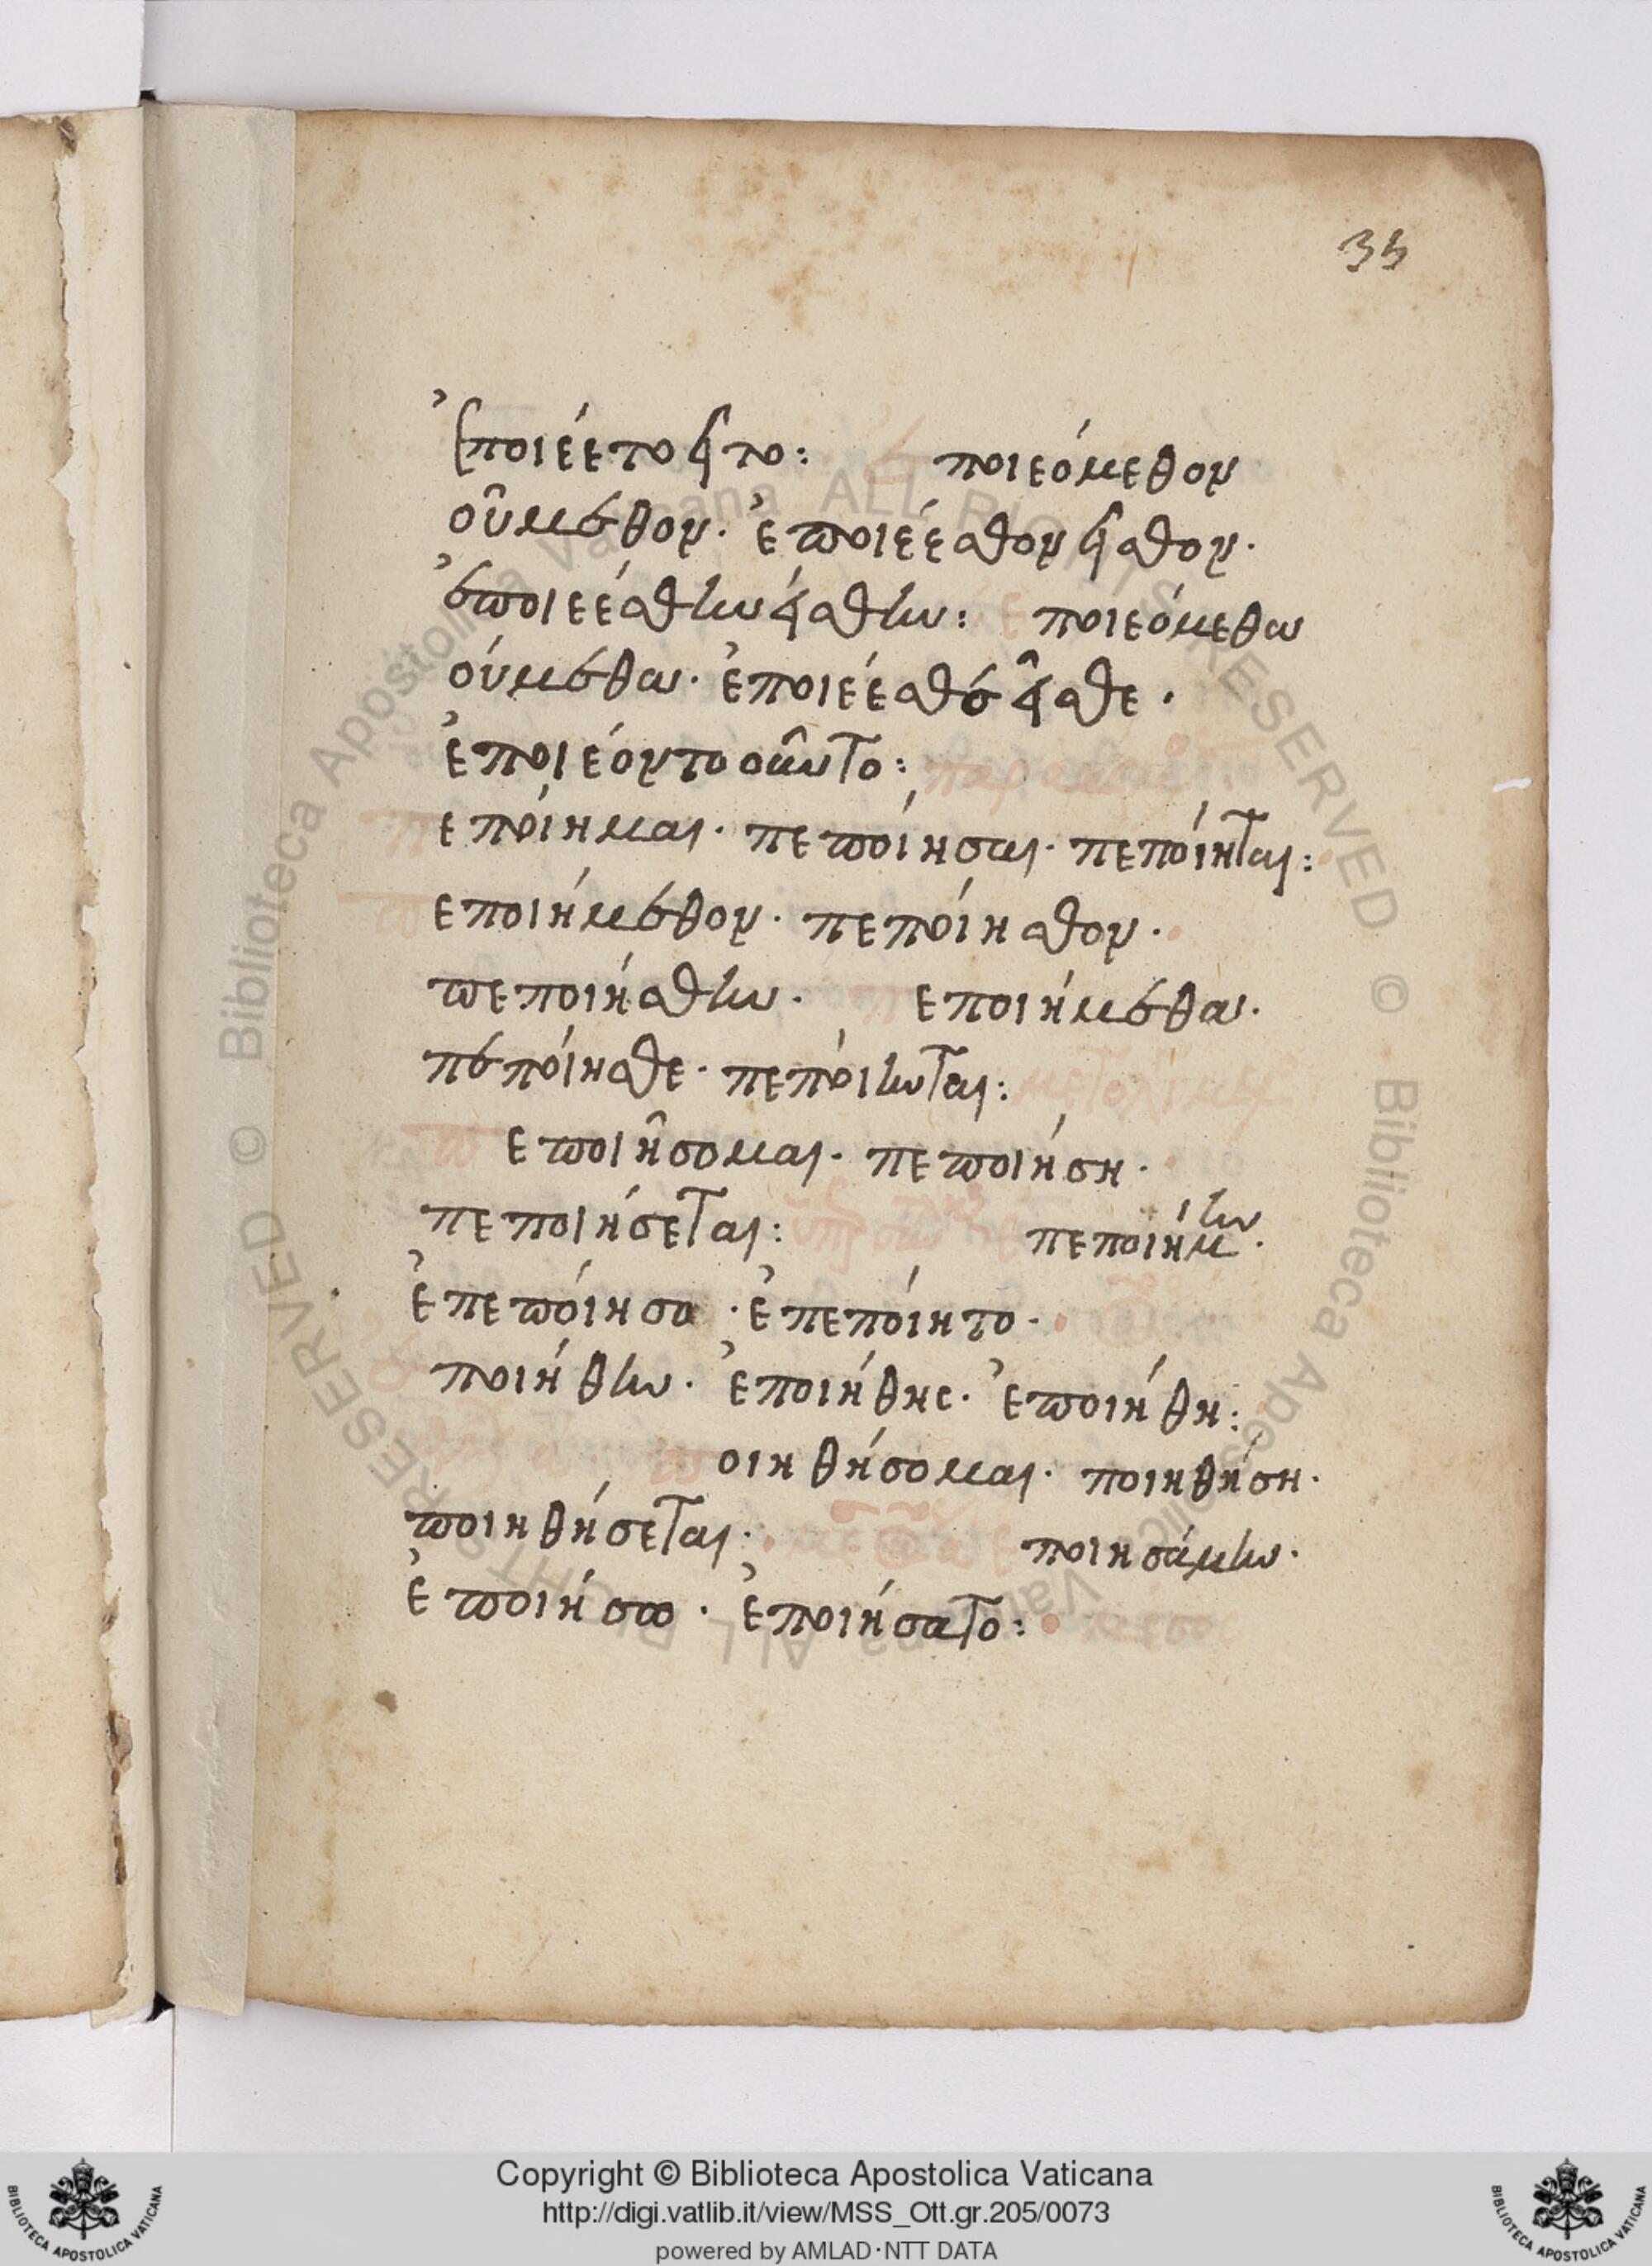 35
ἐποιέετο εῖτο: ποιεόμεθον
ούμεθον· ἐποιέεσθον εῖσθον·
ἐποιεέσθην είσθην: ποιεόμεθα
ούμεθα· ἐποιέεσθε εῖσθε·
ἐποιέοντο οῦντο:
εποίημαι· πεποίησαι· πεποίηται:
εποιήμεθον· πεποίησθον·
πεποιήσθην· εποιήμεθα·
πεποίησθε· πεποίηνται:
εποιήσομαι· πεποιήση·
πεποιήσεται: πεποιήμην·
ἐπεποίησο· ἐπεποίητο·
ποιήθην· ἐποιήθης· ἐποιήθη:
οιηθήσομαι· ποιηθήση·
ποιηθήσεται· ποιησάμην·
ἐποιήσω· ἐποιήσατο:
Copyright © Biblioteca Apostolica Vaticana
http://digi.vatlib.it/view/MSS_Ott.gr.205/0073
powered by AMLAD·NTT DATA